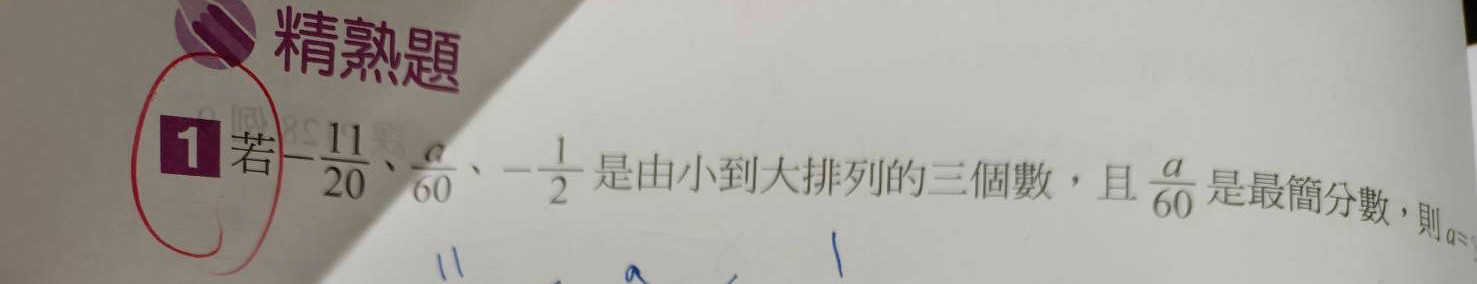 精熟題
1 若 -11/20、a/60、-1/2 是由小到大排列的三個數，且 a/60 是最簡分數，則 a=
11 a 1